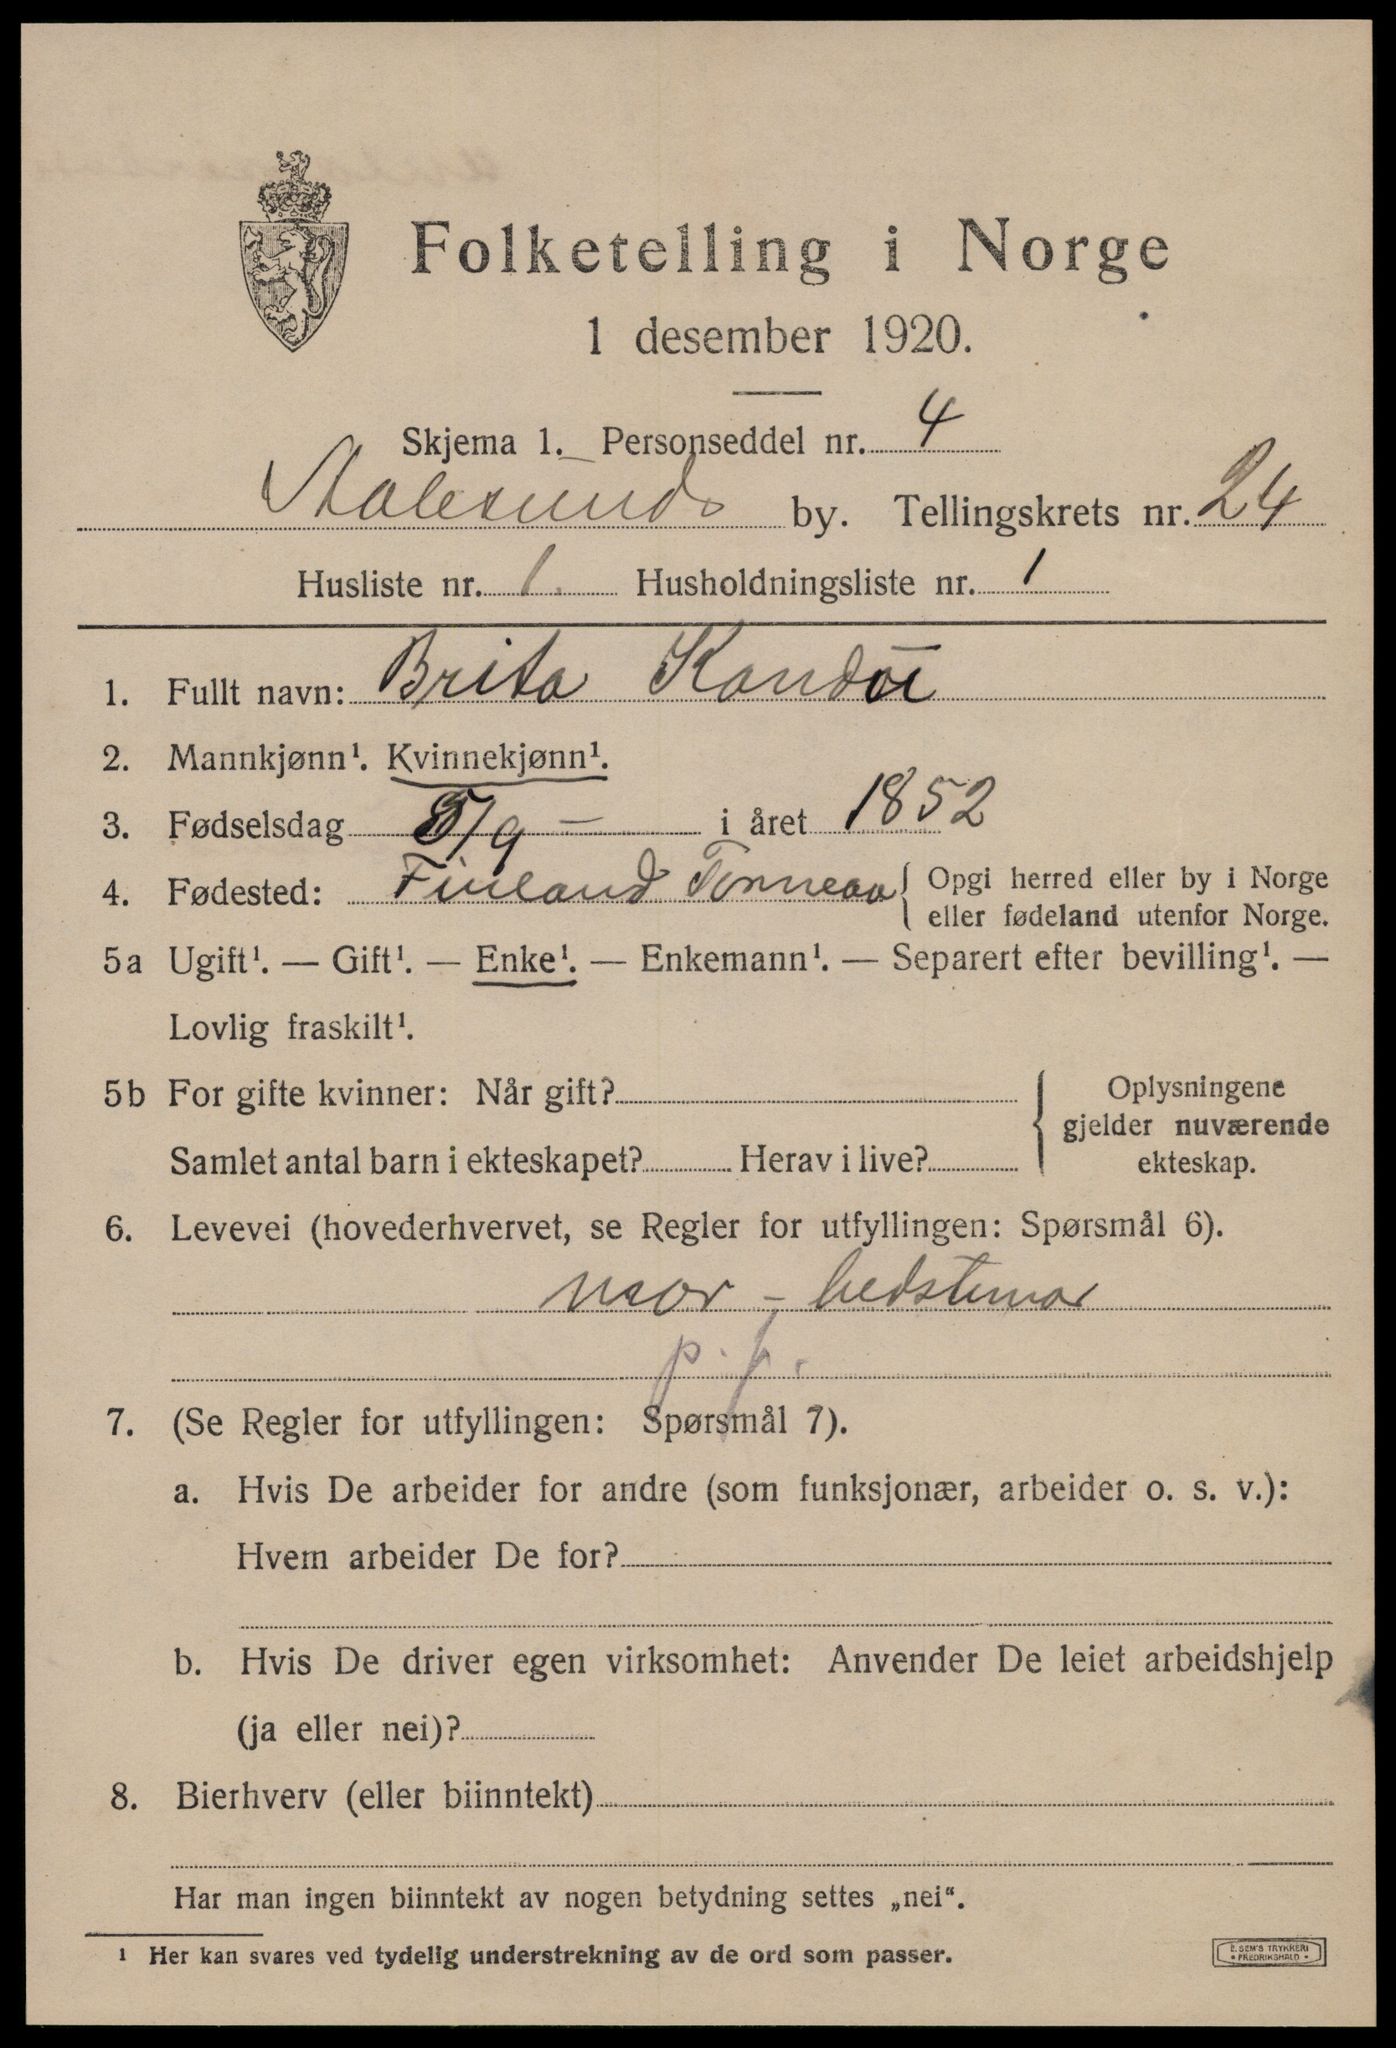 Folketelling i Norge
1 desember 1920.
Skjema 1. Personseddel nr. 4
Aalesunds by. Tellingskrets nr. 24
Husliste nr. 1. Husholdningsliste nr. 1
1. Fullt navn: Brita
2. Mannkjønn¹. Kvinnekjønn¹.
3. Fødselsdag 5/9 – i året 1852
4. Fødested: Finland { Opgi herred eller by i Norge
eller fødeland utenfor Norge.
5a Ugift¹. — Gift¹. — Enke¹. — Enkemann¹. — Separert efter bevilling¹. —
Lovlig fraskilt¹.
5b For gifte kvinner: Når gift?
Samlet antal barn i ekteskapet? Herav i live?
{ Oplysningene
gjelder nuværende
ekteskap.
6. Levevei (hovederhvervet, se Regler for utfyllingen: Spørsmål 6).
mor - bedstemor
p. f.
7. (Se Regler for utfyllingen: Spørsmål 7).
a. Hvis De arbeider for andre (som funksjonær, arbeider o. s. v.):
Hvem arbeider De for?
b. Hvis De driver egen virksomhet: Anvender De leiet arbeidshjelp
(ja eller nei)?
8. Bierhverv (eller biinntekt)
Har man ingen biinntekt av nogen betydning settes „nei“.
¹ Her kan svares ved tydelig understrekning av de ord som passer.
E. SEM'S TRYKKERI
• FREDRIKSHALD •